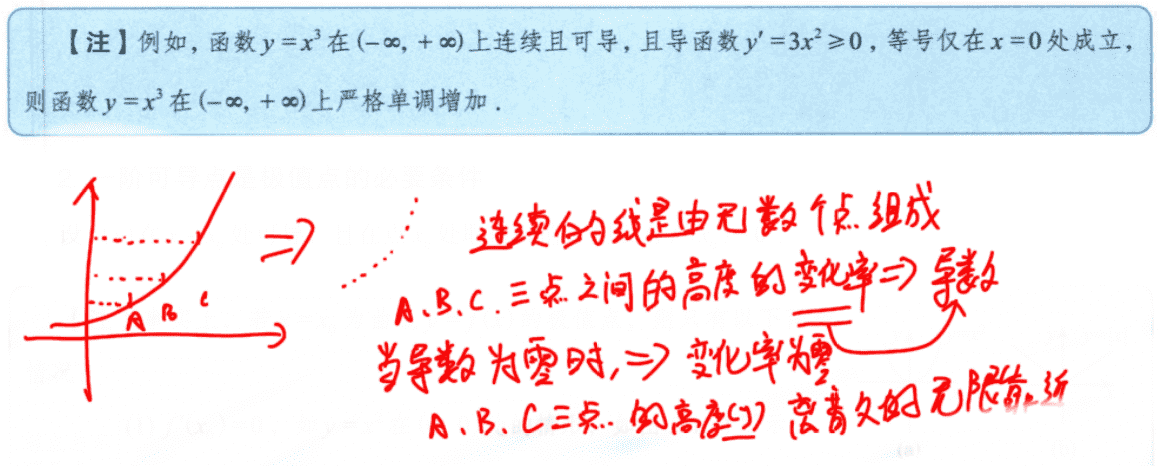 【注】例如,函数y=x³在(-∞,+∞)上连续且可导,且导函数y′=3x²≥0,等号仅在x=0处成立,
则函数y=x³在(-∞,+∞)上严格单调增加.
⇒ 连续的线是由无数个点组成
A、B、C、三点之间的高度的变化率⇒导数
A B C
当导数为零时,⇒变化率为零
A、B、C三点的高度(y) 的无限靠近